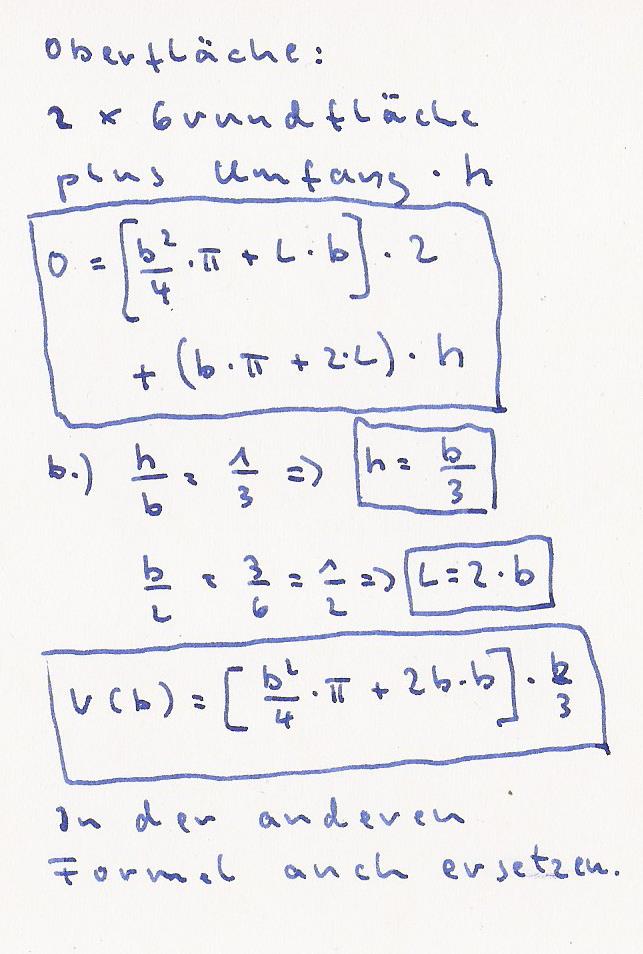 Oberfläche:
2 × Grundfläche
plus Umfang · h
O = [b²/4 · π + L · b] · 2
+ (b · π + 2·L) · h
b.) h/b = 1/3 => h = b/3
b/L = 3/6 = 1/2 => L = 2 · b
V(b) = [b²/4 · π + 2b·b] · b/3
In der anderen
Formel auch ersetzen.